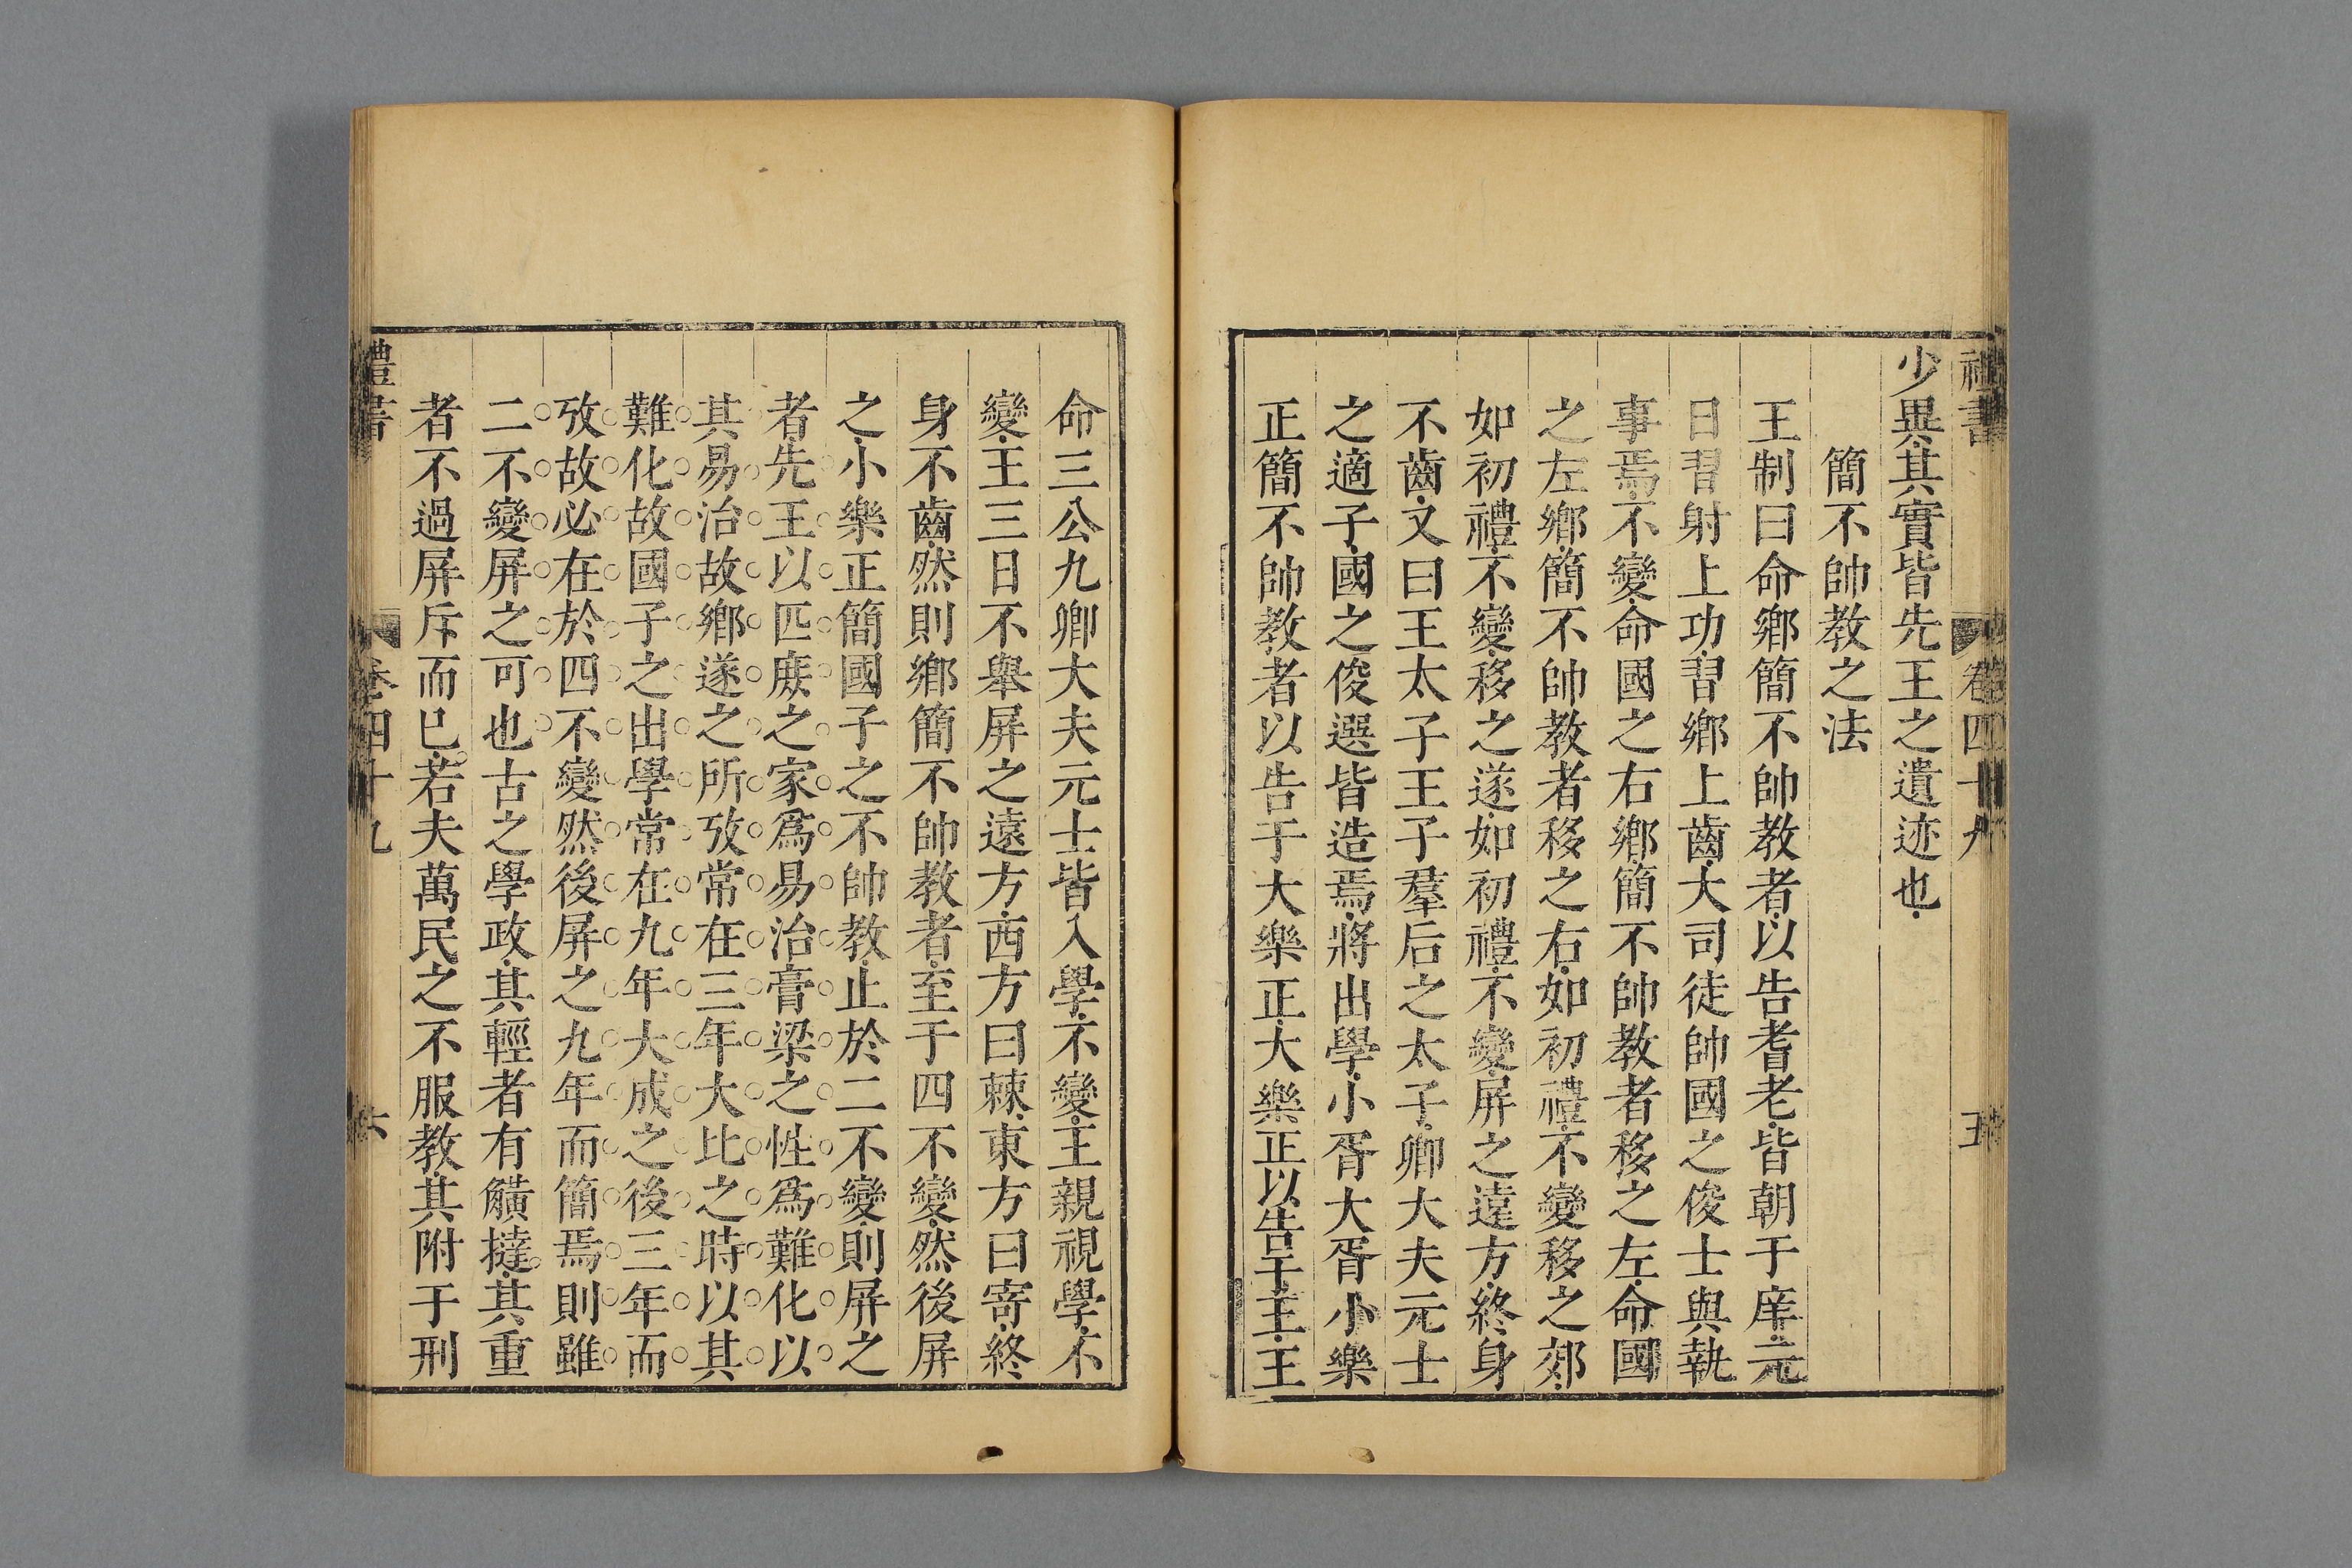 禮書 卷四十九 五
少異其實皆先王之遺迹也
簡不帥教之法
王制曰命鄉簡不帥教者以告耆老皆朝于庠元
日習射上功習鄉上齒大司徒帥國之俊士與執
事焉不變命國之右鄉簡不帥教者移之左命國
之左鄉簡不帥教者移之右如初禮不變移之郊
如初禮不變移之遂如初禮不變屏之遠方終身
不齒文曰王太子王子羣后之太子卿大夫元士
之適子國之俊選皆造焉將出學小胥大胥小樂
正簡不帥教者以告于大樂正大樂正以告于王王
命三公九卿大夫元士皆入學不變王親視學不
變王三日不舉屏之遠方西方曰棘東方曰寄終
身不齒然則鄉簡不帥教者至于四不變然後屏
之小樂正簡國子之不帥教止於二不變則屏之
者先王以匹庶之家爲易治膏粱之性爲難化以
其易治故鄉遂之所攷常在三年大比之時以其
難化故國子之出學常在九年大成之後三年而
攷故必在於四不變然後屏之九年而簡焉則雖
二不變屏之可也古之學政其輕者有觵撻其重
者不過屏斥而已若夫萬民之不服教其附于刑
禮書 卷四十九 六